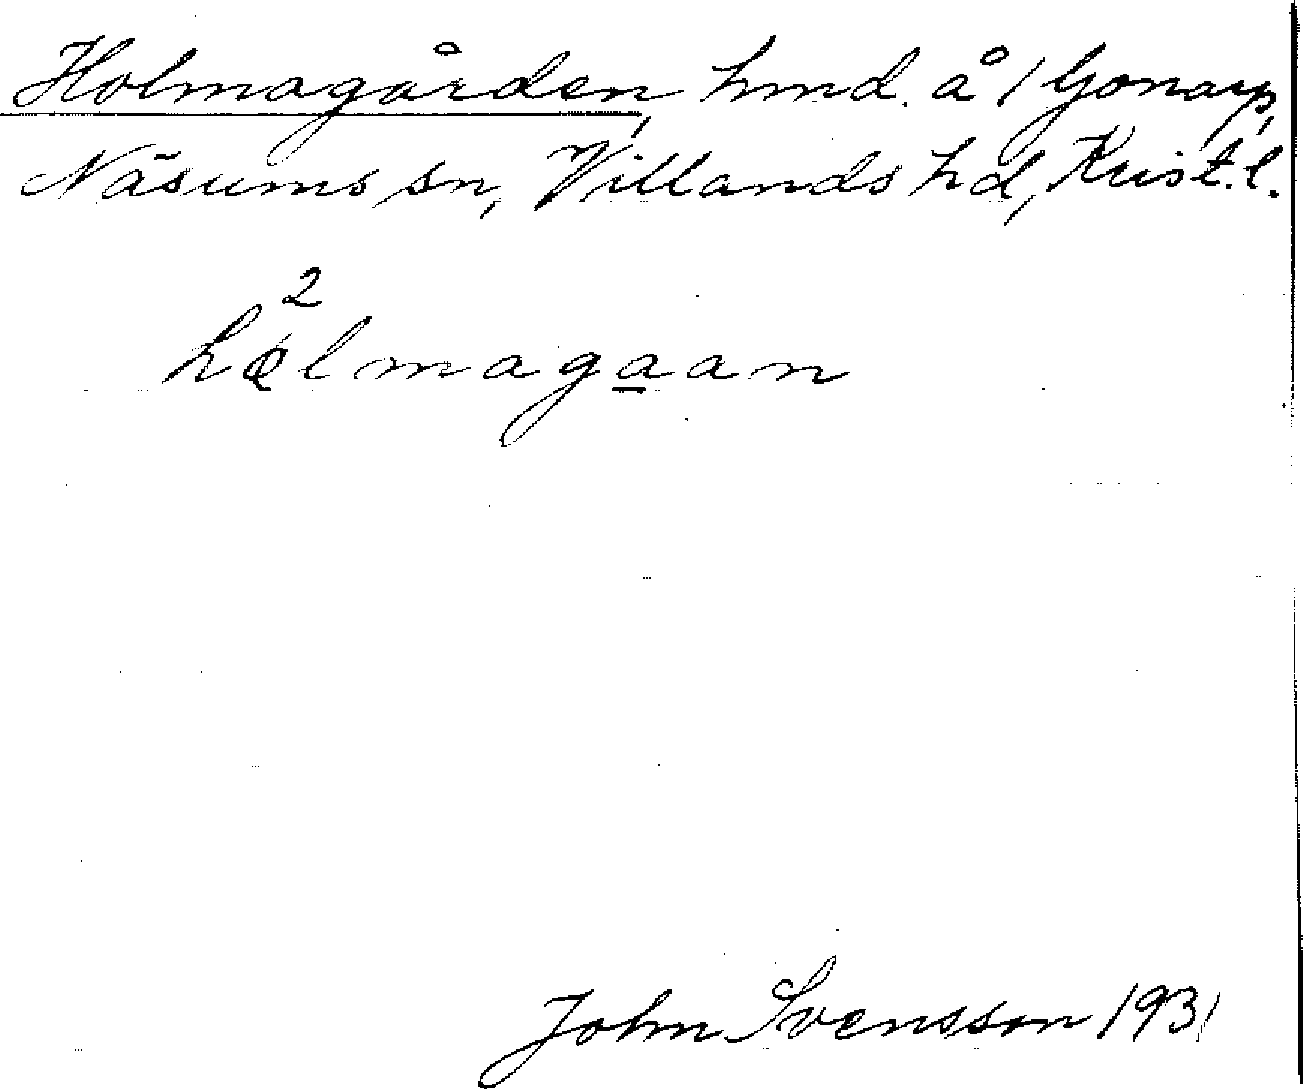 Holmagården, hmd. å 1 Gonarp,
Näsums sn, Villands hd, Krist. l.
2
hålmagaan
John Svensson 1931